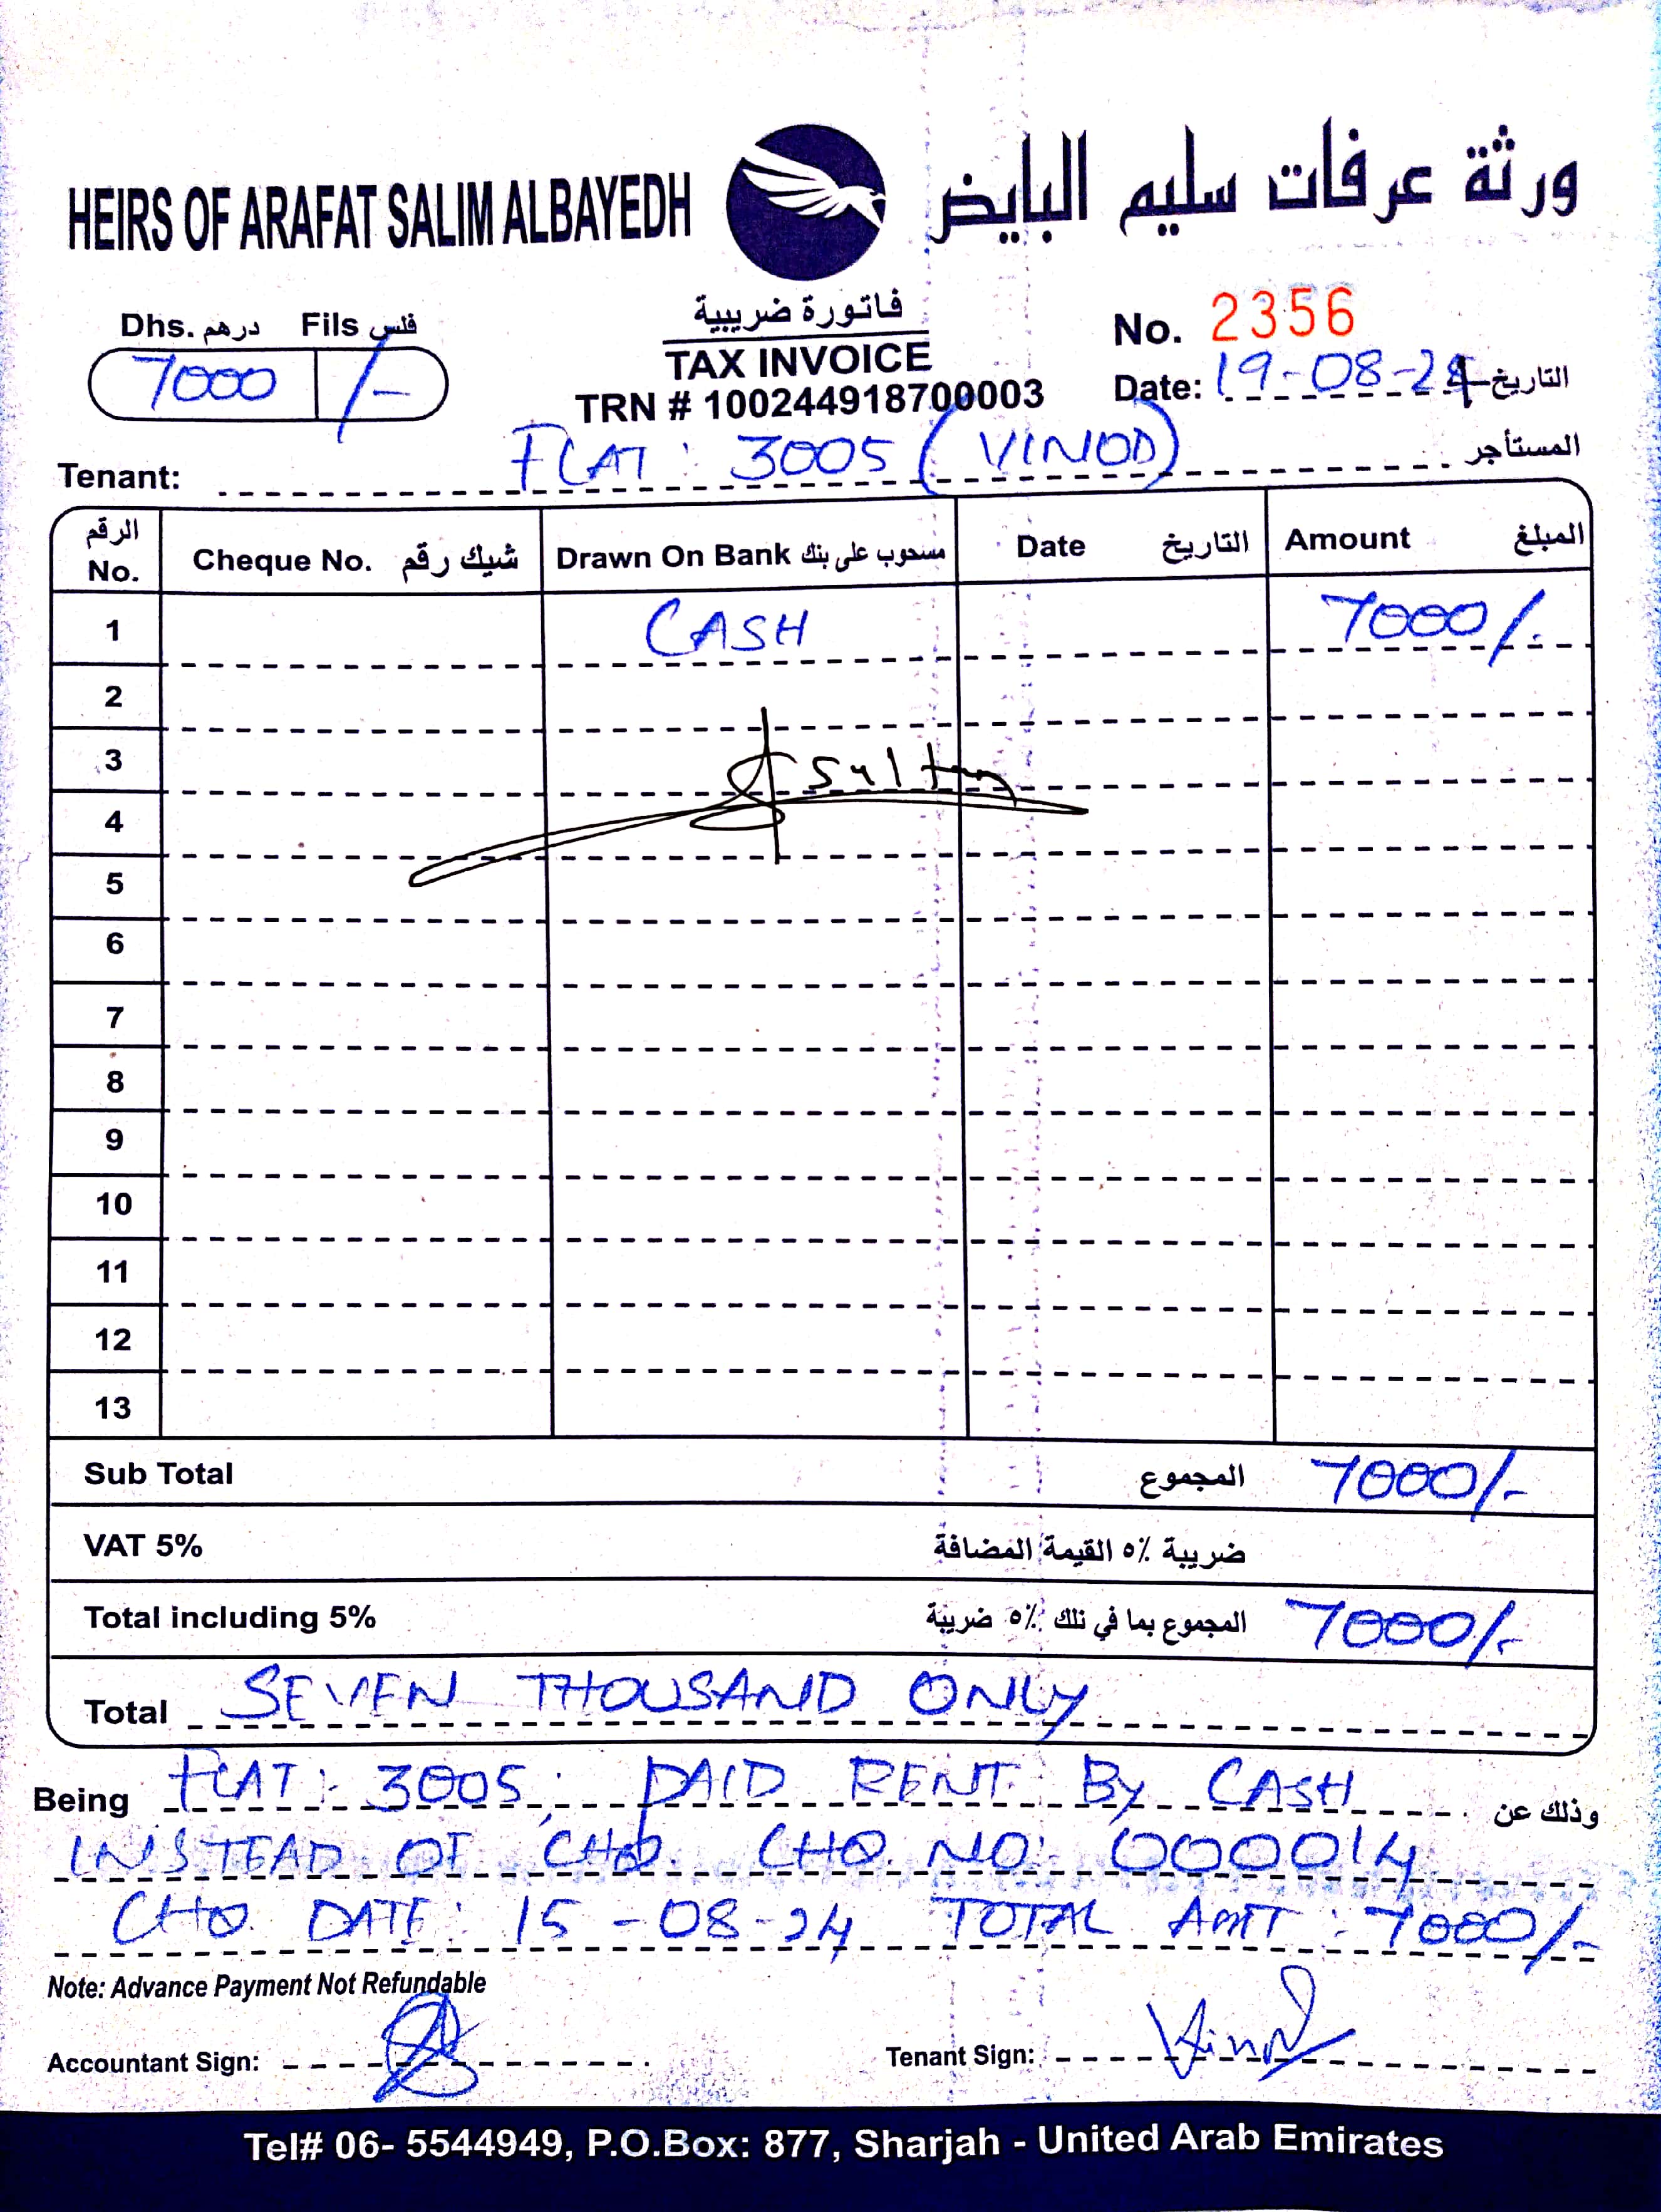 HEIRS OF ARAFAT SALIM ALBAYEDH ورثة عرفات سليم البايض
Dhs. درهم Fils فلس
7000 /-
فاتورة ضريبية
TAX INVOICE
TRN # 100244918700003
No. 2356
Date: 19-08-24 التاريخ
Tenant: FLAT: 3005 (VINOD) المستأجر
الرقم No. Cheque No. شيك رقم Drawn On Bank مسحوب على بنك Date التاريخ Amount المبلغ
1 CASH 7000/-
2
3 Sultan
4
5
6
7
8
9
10
11
12
13
Sub Total المجموع 7000/-
VAT 5% ضريبة ٥٪ القيمة المضافة
Total including 5% المجموع بما في تلك ٥٪ ضريبة 7000/-
Total SEVEN THOUSAND ONLY
Being FLAT: 3005; PAID RENT BY CASH وذلك عن
INSTEAD OF CHQ. CHQ. NO: 000014
CHQ. DATE: 15-08-24 TOTAL AMT: 7000/-
Note: Advance Payment Not Refundable
Accountant Sign: Tenant Sign: Vinod
Tel# 06- 5544949, P.O.Box: 877, Sharjah - United Arab Emirates